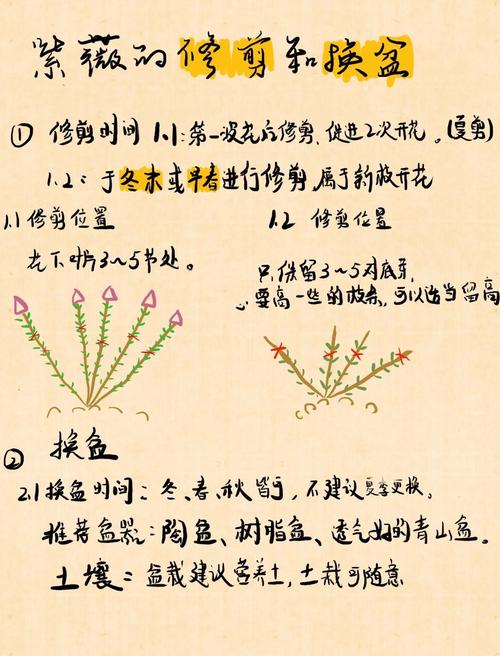 紫薇的修剪和换盆
① 修剪时间 1.1:第一波花后修剪,促进2次开花。(夏剪)
1.2:于冬末或早春进行修剪,属于新枝开花
1.1 修剪位置
花下叶片3~5节处。
1.2 修剪位置
只保留3~5对底芽,
要高一些的枝条,可以适当留高
② 换盆
2.1 换盆时间:冬、春、秋皆可,不建议夏季更换。
推荐盆器:陶盆、树脂盆、透气好的青山盆。
土壤:盆栽建议营养土,土栽可随意